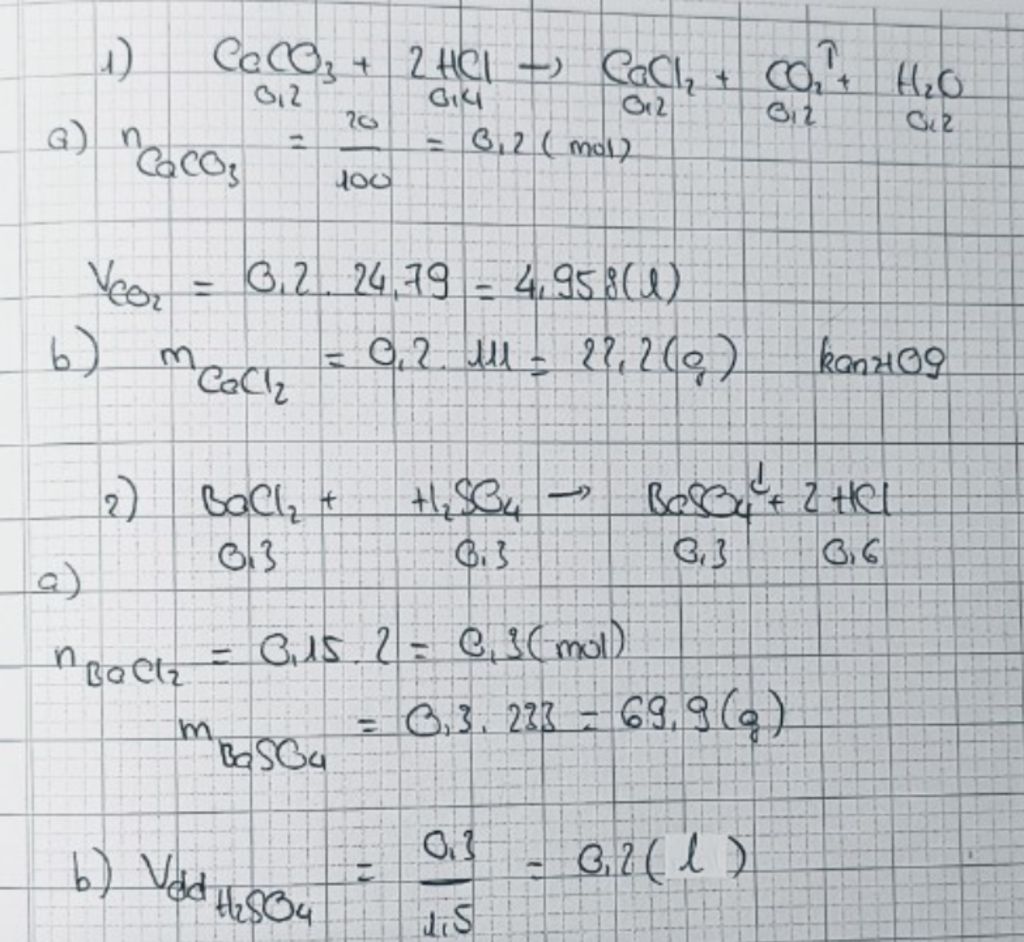 1) CaCO₃ + 2HCl → CaCl₂ + CO₂↑ + H₂O
0,2 0,4 0,2 0,2 0,2
a) n CaCO₃ = 20/100 = 0,2 (mol)
V CO₂ = 0,2 . 24,79 = 4,958 (l)
b) m CaCl₂ = 0,2 . 111 = 22,2 (g) kanz109
2) BaCl₂ + H₂SO₄ → BaSO₄↓ + 2HCl
0,3 0,3 0,3 0,6
a)
n BaCl₂ = 0,15 . 2 = 0,3 (mol)
m BaSO₄ = 0,3 . 233 = 69,9 (g)
b) Vdd H₂SO₄ = 0,3/1,5 = 0,2 (l)